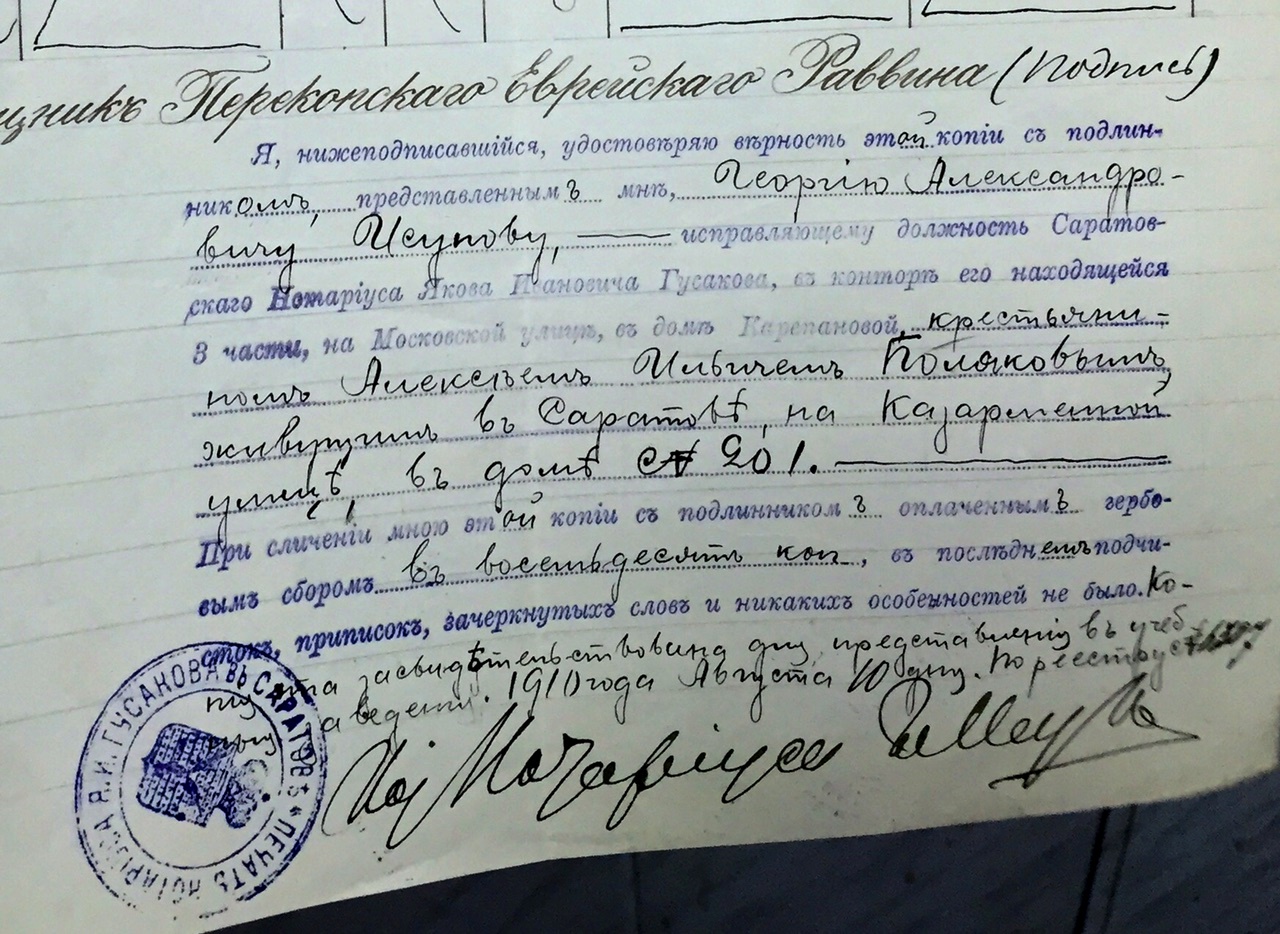 щникъ Перекопскаго Еврейскаго Раввина (подпись)
Я, нижеподписавшійся, удостовѣряю вѣрность этой копіи съ подлин-
никомъ, представленнымъ мнѣ, Георгію Александро-
вичу Исупову, исправляющему должность Саратов-
скаго Нотаріуса Якова Ивановича Гусакова, въ конторѣ его находящейся
3 части, на Московской улицѣ, въ домѣ Карепановой, крестьяни-
номъ Алексѣемъ Ильичемъ Поляковымъ,
живущимъ въ Саратовѣ, на Казарменной
улицѣ, въ домѣ № 201.
При сличеніи мною этой копіи съ подлинникомъ оплаченнымъ гербо-
вымъ сборомъ въ восемьдесятъ коп, въ послѣднемъ подчи-
стокъ, приписокъ, зачеркнутыхъ словъ и никакихъ особенностей не было. Ко-
пія эта засвидѣтельствована для представленія въ учеб-
ныя заведенія. 1910 года Августа 10 дня. По реестру
Нотаріуса
ПЕЧАТЬ НОТАРІУСА Я.И. ГУСАКОВА ВЪ САРАТОВѢ